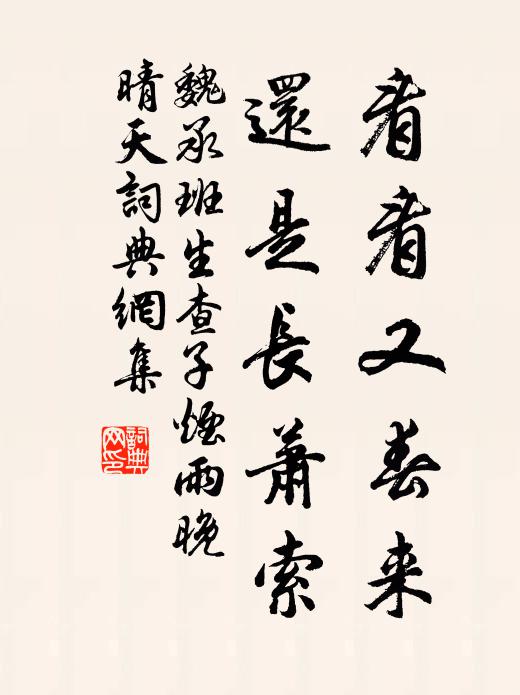 看看又春来
還是長蕭索
魏承班生查子煙雨晚
晴天詞典網集
詞典網印